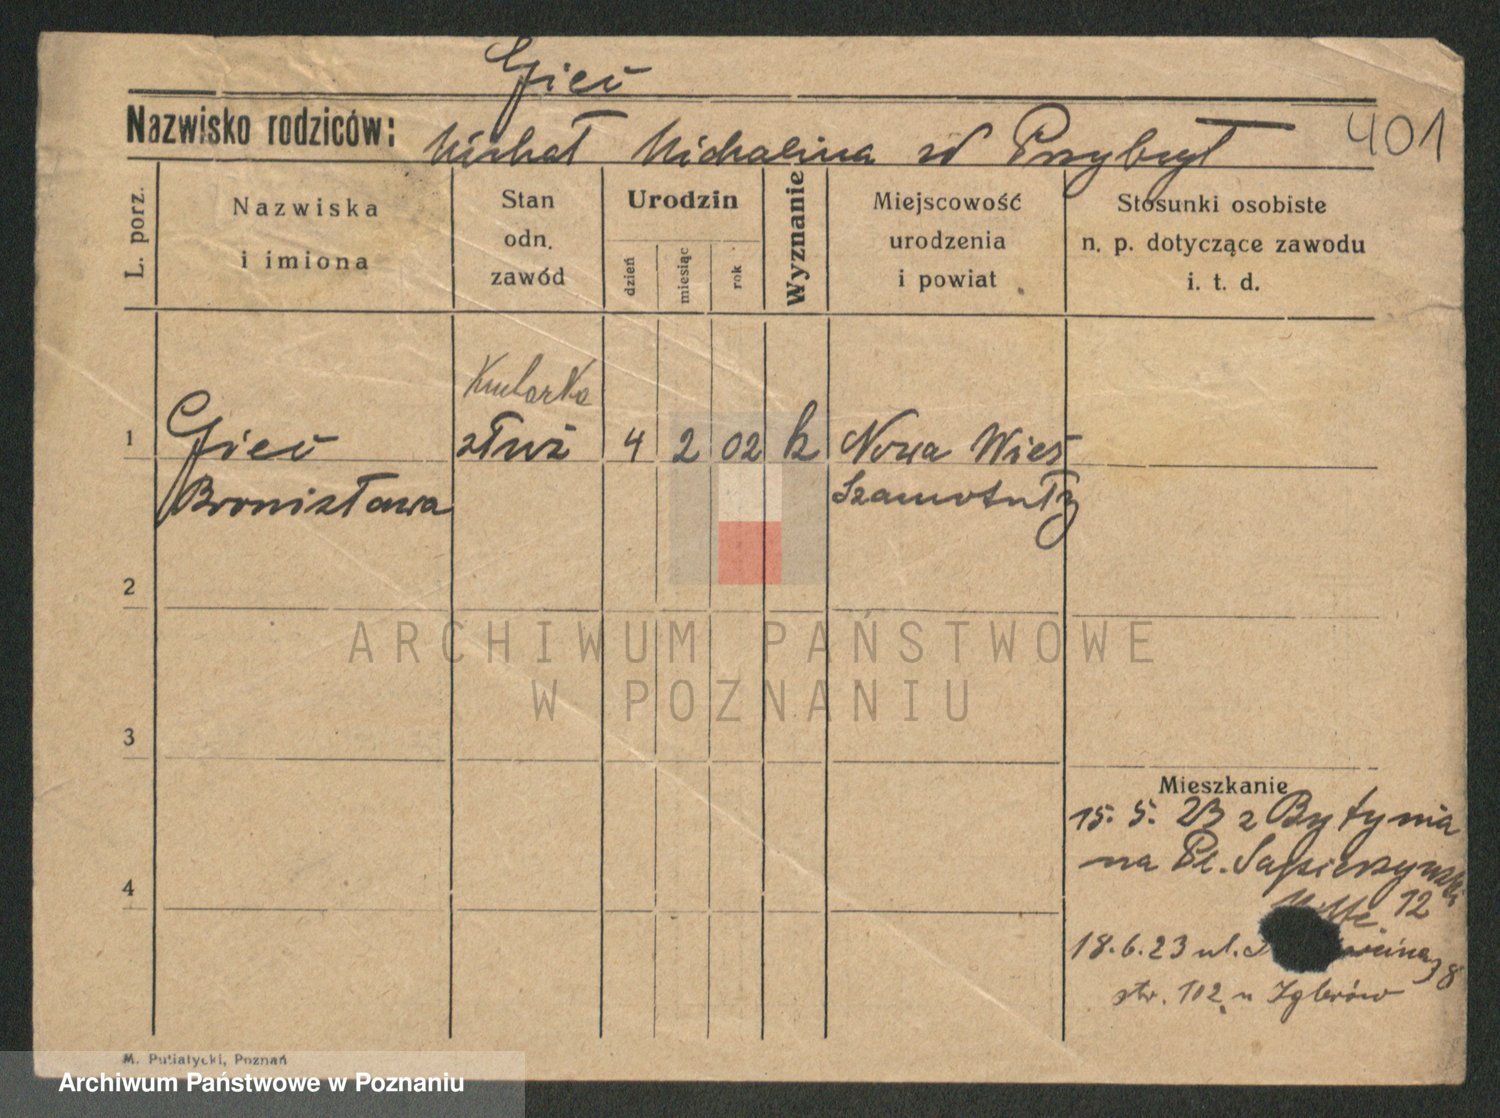 Gieć
Nazwisko rodziców: Michał Michalina zd Przybył
401
L. porz.
Nazwiska i imiona
Stan odn. zawód
Urodzin
dzień
miesiąc
rok
Wyznanie
Miejscowość urodzenia i powiat
Stosunki osobiste n. p. dotyczące zawodu i. t. d.
Kucharka
1 Gieć służ 4 2 02 k Nowa Wieś
Bronisława Szamotuły
2
3
4
Mieszkanie
15. 5. 23 z Bytynia
na Pl. Sapieżyński
12
18.6.23 ul. 38
str. 102 u
ARCHIWUM PAŃSTWOWE
W POZNANIU
M. Putiatycki, Poznań
Archiwum Państwowe w Poznaniu